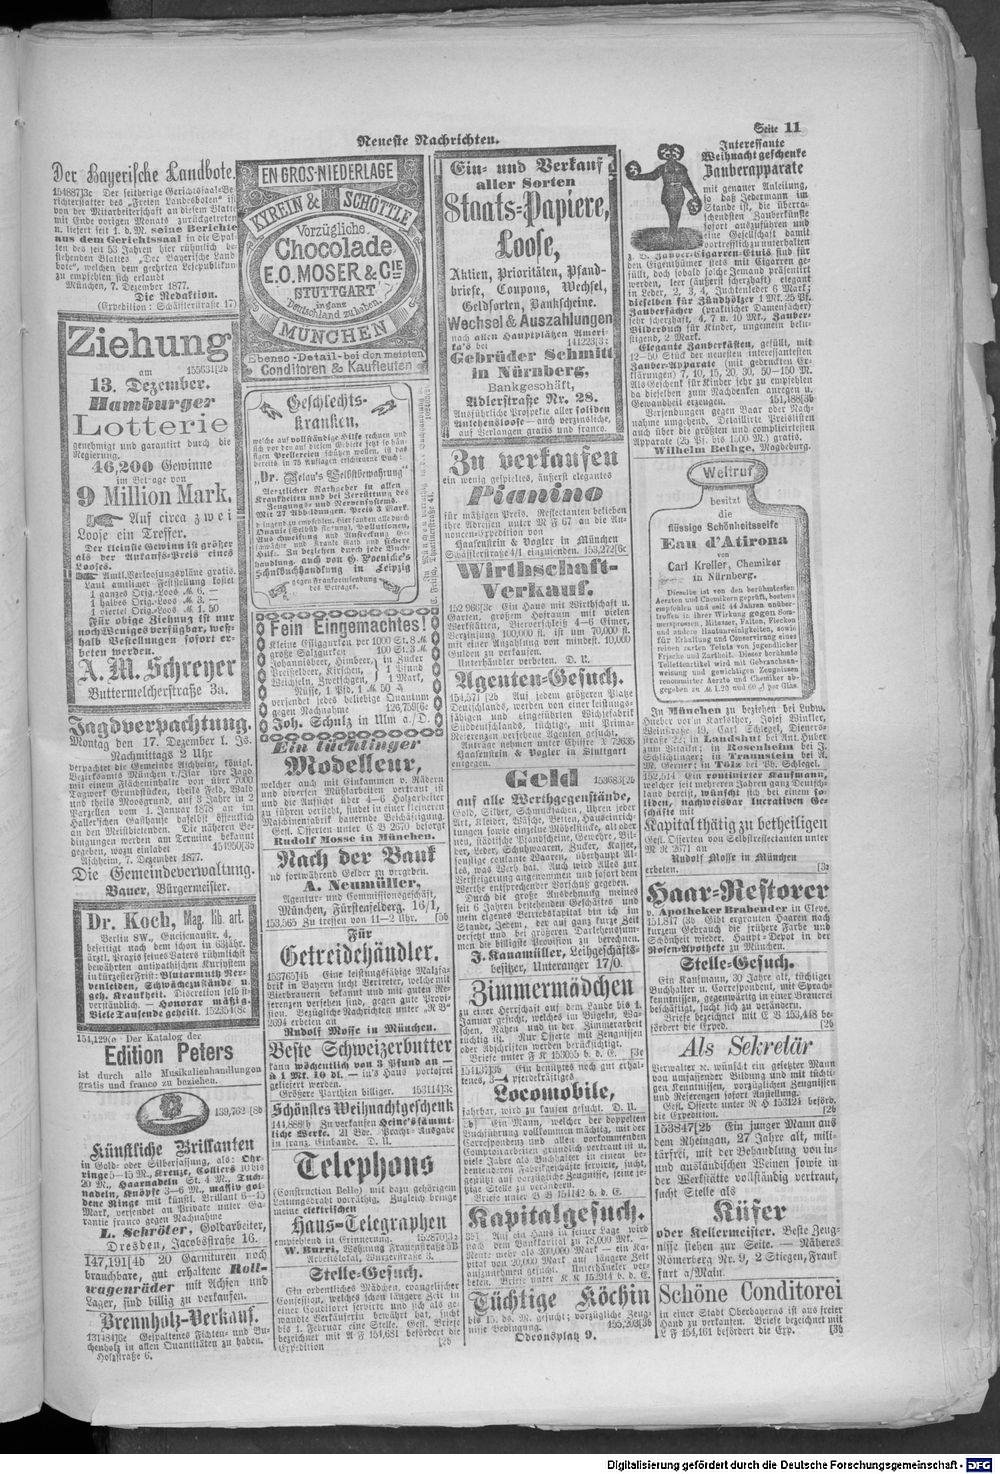 Neueste Nachrichten.
Seite 11
Der Bayerische Landbote.
15488713c Der seitherige Gerichtssaal-Be-
richterstatter des "Freien Landesboten" ist
von der Mitarbeiterschaft an diesem Blatte
mit Ende vorigen Monats zurückgetreten
u. liefert seit 1. d. M. seine Berichte
aus dem Gerichtssaal in die Spal-
ten des seit 53 Jahren hier rühmlich be-
stehenden Blattes „Der Bayerische Land-
bote“, welchen dem geehrten Lesepublikum
zu empfehlen sich erlaubt
München, 7. Dezember 1877.
Die Redaktion.
(Expedition: Schäfflerstraße 17)
Ziehung
am 155631[2b
13. Dezember.
Hamburger
Lotterie
genehmigt und garantirt durch die
Regierung.
46,200 Gewinne
im Betrage von
9 Million Mark.
Auf circa zwei
Loose ein Treffer.
Der kleinste Gewinn ist größer
als der Ankaufs-Preis eines
Looses.
Amtl. Verloosungspläne gratis.
Laut amtlicher Feststellung kostet
1 ganzes Orig.-Loos M 6. —
1 halbes Orig.-Loos M 3. —
1 viertel Orig.-Loos M 1. 50
Für obige Ziehung ist nur
noch Weniges verfügbar, weß-
halb Bestellungen sofort er-
beten werden.
A. M. Schreyer
Buttermelcherstraße 3a.
Jagdverpachtung.
Montag den 17. Dezember l. Js.
Nachmittags 2 Uhr
verpachtet die Gemeinde Aschheim, königl.
Bezirksamts München r./Isar ihre Jagd
mit einem Flächeninhalte von über 7000
Tagwerk Grundstücken, theils Feld, Wald
und theils Moosgrund, auf 3 Jahre in 2
Parzellen vom 1. Januar 1878 an im
Haller'schen Gasthause daselbst öffentlich
an den Meistbietenden. Die näheren Be-
dingungen werden am Termine bekannt
gegeben, wozu einladet 454950[3b
Aschheim, 7. Dezember 1877.
Die Gemeindeverwaltung.
Bauer, Bürgermeister.
Dr. Koch, Mag. lib. art.
Berlin SW., Gneisenaustr. 4,
beseitigt nach dem schon in 63jähr.
ärztl. Praxis seines Vaters rühmlichst
bewährten antipathischen Kursystem
in kürzester Frist: Blutarmuth, Ner-
venleiden, Schwächezustände u.
geh. Krankheit. Discretion selbst-
verständlich. — Honorar mäßig.
Viele Tausende geheilt. 152354[8c
154,129[c Der Katalog der
Edition Peters
ist durch alle Musikalienhandlungen
gratis und franco zu beziehen.
139,762 [8b
Künstliche Brillanten
in Gold- oder Silberfassung, als: Ohr-
ringe 5—15 M., Kreuze, Colliers 10 bis
20 M., Haarnadeln St. 4 M., Tuch-
nadeln, Knöpfe 3—6 M., massiv gol-
dene Ringe mit künstl. Brillant 6—15
Mark, versendet an Private unter Ga-
rantie franco gegen Nachnahme
L. Schröter, Goldarbeiter,
Dresden, Jacobsstraße 16.
147,191[4b 20 Garnituren noch
brauchbare, gut erhaltene Roll-
wagenräder mit Achsen und
Lager, sind billig zu verkaufen.
Brennholz-Verkauf.
131484[6c Gespaltenes Fichten- und Bu-
chenholz in allen Quantitäten zu haben.
Holzstraße 6.
EN GROS-NIEDERLAGE
KYREIN & SCHÖTTLE
Vorzügliche
Chocolade
E.O. MOSER & CIE
STUTTGART
in ganz
Deutschland zu haben.
MÜNCHEN
Ebenso - Detail - bei den meisten
Conditoren & Kaufleuten
Geschlechts-
Kranken,
welche auf vollständige Hilfe rechnen und
sich vor den auf diesem Gebiete jetzt so häu-
figen Prellereien schützen wollen, ist das
bereits in 75 Auflagen erschienene Buch:
„Dr. Retau's Selbstbewahrung“
Aerztlicher Rathgeber in allen
Krankheiten und bei Zerrüttung des
Zeugungs- und Nervensystems.
Mit 27 Abbildungen. Preis 3 Mark.
dringend zu empfehlen. Hier fanden alle durch
Onanie (Selbstbefleckung), Pollutionen,
Ausschweifung und Ansteckung Ge-
schwächte und Kranke Rath und sichere
Hilfe. Zu beziehen durch jede Buch-
handlung, auch von G. Poenicke's
Schulbuchhandlung in Leipzig
gegen Frankoeinsendung
des Betrages.
Fein Eingemachtes!
Kleine Essiggurken per 1000 St. 8 M
große Salzgurken 100 St. 3 M
Johannisbeer, Himbeer, in Zucker
Preißelbeer, Kirschen, 1 Pfund
Weichseln, Zwetschgen, 1 Mark,
Nüsse, 1 Pfd. 1 M 50 ₰
versendet jedes beliebige Quantum
gegen Nachnahme 126,759[6c
Joh. Schulz in Ulm a./D.
Ein tüchtiger
Modelleur,
welcher auch mit Einkammen v. Rädern
und diversen Mühlarbeiten vertraut ist
und die Aufsicht über 4—6 Holzarbeiter
zu führen versteht, findet in einer kleineren
Maschinenfabrik dauernde Beschäftigung.
Gefl. Offerten unter C B 2670 besorgt
Rudolf Mosse in München.
Nach der Bank
und fortwährend Gelder zu vergeben.
A. Neumüller,
Agentur- und Commissionsgeschäft,
München, Fürstenfelderg. 16/1,
153,565 Zu treffen von 11—2 Uhr. [5b
Für
Getreidehändler.
153765[4b Eine leistungsfähige Malzfa-
brik in Bayern sucht Vertreter, welche mit
Bierbrauern bekannt und mit guten Re-
ferenzen versehen sind, gegen gute Provi-
sion. Bezügliche Nachrichten unter „R B“
2694 erbeten an
Rudolf Mosse in München.
Beste Schweizerbutter
kann wöchentlich von 3 Pfund an —
à 1 Mk. 10 dl. — in's Haus portofrei
geliefert werden.
Größere Parthien billiger. 153114[3c
Schönstes Weihnachtgeschenk
144,888[b Zu verkaufen Heine's sämmt-
liche Werke. 21 Bde. Pracht-Ausgabe
in franz. Einbande. D. U.
Telephons
(Construction Delle) mit dazu gehörigem
Leitungsdraht vorräthig. Zugleich bringe
meine elektrischen
Haus-Telegraphen
empfehlend in Erinnerung. 152870[3z
W. Burri, Wohnung Frauenstraße 5B
Arbeitslokal, Wurzerstraße 3.
Stelle-Gesuch.
Ein ordentliches Mädchen, evangelischer
Confession, welches schon längere Zeit in
einer Conditorei servirte und sich als ge-
wandte Verkäuferin bewährt hat, sucht
bis 1. Februar eine Stelle. Gefl. Briefe
bezeichnet mit A F 154,681 befördert die
Expedition [2b
Ein- und Verkauf
aller Sorten
Staats-Papiere,
Loose,
Aktien, Prioritäten, Pfand-
briefe, Coupons, Wechsel,
Geldsorten, Bankscheine.
Wechsel & Auszahlungen
nach allen Hauptplätzen Ameri-
ka's bei 141223[3:
Gebrüder Schmitt
in Nürnberg,
Bankgeschäft,
Adlerstraße Nr. 28.
Ausführliche Prospekte aller soliden
Anlehensloose — auch verzinsliche,
auf Verlangen gratis und franco.
Zu verkaufen
ein wenig gespieltes, äußerst elegantes
Pianino
für mäßigen Preis. Reflectanten belieben
ihre Adressen unter M F 67 an die An-
noncen-Expedition von
Haasenstein & Vogler in München
Schäfflerstraße 4/1 einzusenden. 153,272[6c
Wirthschaft-
Verkauf.
152 966[3c Ein Haus mit Wirthschaft u.
Garten, großem Hofraum mit vielen
Werkstätten, Bierverschleiß 4—6 Eimer,
Verzinsung 100,000 fl. ist um 70,000 fl.
mit einer Anzahlung von mindest. 10,000
Gulden zu verkaufen.
Unterhändler verbeten. D. U.
Agenten-Gesuch.
154,571 [2b Auf jedem größeren Platze
Deutschlands, werden von einer leistungs-
fähigen und eingeführten Wichsefabrik
Süddeutschlands, tüchtige, mit Prima-
Referenzen versehene Agenten gesucht.
Anträge nehmen unter Chiffre X 72635
Haasenstein & Vogler in Stuttgart
entgegen.
Geld 153683[2b
auf alle Werthgegenstände,
Gold, Silber, Schmucksachen, Uhren jeder
Art, Kleider, Wäsche, Betten, Hauseinrich-
tungen sowie einzelne Möbelstücke, alt oder
neu, städtische Pfandscheine, Gewehre, Bil-
der, Leder, Schuhwaaren, Zucker, Kaffee,
sonstige coulante Waaren, überhaupt Al-
les, was Werth hat. Auch wird Alles zur
Versteigerung angenommen und sofort dem
Werthe entsprechender Vorschuß gegeben.
Durch die große Ausdehnung meines
seit 6 Jahren bestehenden Geschäftes und
mein eigenes Betriebskapital bin ich im
Stande, Jedem, der auf ganz kurze Zeit
versetzt und bei größeren Darlehenssum-
men die billigste Provision zu berechnen.
J. Kanamüller, Leihgeschäfts-
besitzer, Unteranger 17/0.
Zimmermädchen
zu einer Herrschaft auf dem Lande bis 1.
Januar gesucht, welches im Bügeln, Wa-
schen, Nähen und in der Zimmerarbeit
tüchtig ist. Nur Offerte mit Zeugnissen
oder Abschriften werden berücksichtigt.
Briefe unter F K 153055 b. d. E. [3c
154137[3b Ein benütztes noch gut erhal-
tenes, 3—4 pferdekräftiges
Locomobile,
fahrbar, wird zu kaufen gesucht. D. U.
2b] Ein Mann, welcher der doppelten
Buchführung vollkommen mächtig, mit der
Correspondenz und allen vorkommenden
Comptoirarbeiten gründlich vertraut, be-
reits viele Jahre als Buchhalter in einem be-
deutenderen Fabrikgeschäfte servirte, sucht,
gestützt auf vorzügliche Zeugnisse, seine je-
tzige Stelle zu verändern.
Briefe unter B B 154142 b. d. E.
Kapitalgesuch.
3b] Auf ein Haus in feiner Lage wird
ein Bankkapital zu 78,000 Mk. —
Rente mehr als 300,000 Mark — ein Ka-
pital von 20,000 Mark auf längere Zeit
aufzunehmen gesucht. Unterhändler ver-
beten. Briefe unter K K 152914 b. d. E.
Tüchtige Köchin
bis 15. ds. M. gesucht; vorzügliche Zeug-
nisse Bedingung. 155,203[3b
Odeonsplatz 9.
Interessante
Weihnachtsgeschenke
Zauberapparate
mit genauer Anleitung,
so daß Jedermann im
Stande ist, die überra-
schendsten Zauberkünste
sofort auszuführen und
eine Gesellschaft damit
vortrefflich zu unterhalten
z. B. Zauber-Cigarren-Etuis sind für
den Eigenthümer stets mit Cigarren ge-
füllt, doch sobald solche Jemand präsentirt
werden, leer (äußerst scherzhaft) elegant
in Leder, 2, 3, 4, Juchtenleder 6 Mark;
dieselben für Zündhölzer 1 Mk. 25 Pf.
Zauberfächer (praktischer Damenfächer)
sehr scherzhaft, 4, 7 u. 10 Mk. Zauber-
Bilderbuch für Kinder, ungemein belu-
stigend, 2 Mark.
Elegante Zauberkästen, gefüllt, mit
12—50 Stück der neuesten interessantesten
Zauber-Apparate (mit gedruckten Er-
klärungen) 7, 10, 15, 20, 30, 50—150 M.
Als Geschenk für Kinder sehr zu empfehlen
da dieselben zum Nachdenken anregen u.
Gewandtheit erzeugen. 151,188[3b
Versendungen gegen Baar oder Nach-
nahme umgehend. Detaillirte Preislisten
auch über die größten und complicirtesten
Apparate (25 Pf. bis 1500 M.) gratis.
Wilhelm Bethge, Magdeburg.
Weltruf
besitzt
die
flüssige Schönheitsseife
Eau d'Atirona
von
Carl Kreller, Chemiker
in Nürnberg.
Dieselbe ist von den berühmtesten
Aerzten und Chemikern geprüft, bestens
empfohlen und seit 44 Jahren unüber-
troffen in ihrer Wirkung gegen Som-
mersprossen, Mitesser, Falten, Flecken
und andere Hautunreinigkeiten, sowie
für Erhaltung und Conservirung eines
reinen zarten Teints von jugendlicher
Frische und Zartheit. Dieser berühmte
Toilettartikel wird mit Gebrauchsan-
weisung und gewichtigen Zeugnissen
renommirter Aerzte und Chemiker ab-
gegeben zu M 1.20 und 60 ₰ per Glas.
In München zu beziehen bei Ludw.
Hueber vorm Karlsthor, Josef Winkler,
Weinstraße 19, Carl Schlegel, Dieners-
straße 22; in Landshut bei Ant. Huber
zum Vitzthum; in Rosenheim bei J.
Schließinger; in Traunstein bei R.
M. Gerner; in Tölz bei Ph. Schlegel.
152,514 Ein routinirter Kaufmann,
welcher seit mehreren Jahren ganz Deutsch-
land bereist, wünscht sich bei einem so-
liden, nachweisbar lucrativen Ge-
schäfte mit
Kapital thätig zu betheiligen
Gefl. Offerten von Selbstreflectanten unter
M R 2671 an
Rudolf Mosse in München
erbeten. [3z
Haar-Restorer
v. Apotheker Brabender in Cleve.
151,847 [3b Gibt ergrauten Haaren nach
kurzem Gebrauch die frühere Farbe und
Schönheit wieder. Haupt-Depot in der
Rosen-Apotheke zu München.
Stelle-Gesuch.
Ein Kaufmann, 30 Jahre alt, tüchtiger
Buchhalter u. Correspondent, mit Sprach-
kenntnissen, gegenwärtig in einer Brauerei
beschäftigt, sucht sich zu verändern.
Briefe bezeichnet mit C B 153,448 be-
fördert die Exped. [2b
Als Sekretär
Verwalter &c. wünscht ein gesetzter Mann
von umfassender Bildung und mit tüchti-
gen Kenntnissen, vorzüglichen Zeugnissen
und Referenzen sofort Anstellung.
Gefl. Offerte unter R H 153124 beförd.
die Expedition. [2b
153847[2b Ein junger Mann aus
dem Rheingau, 27 Jahre alt, mili-
tärfrei, mit der Behandlung von in-
und ausländischen Weinen sowie in
der Werkstätte vollständig vertraut,
sucht Stelle als
Küfer
oder Kellermeister. Beste Zeug-
nisse stehen zur Seite. — Näheres
Römerberg Nr. 9, 2 Stiegen, Frank
furt a/Main.
Schöne Conditorei
in einer Stadt Oberbayerns ist aus freier
Hand zu verkaufen. Briefe bezeichnet mit
L F 154,161 befördert die Exp. [3b
Digitalisierung gefördert durch die Deutsche Forschungsgemeinschaft - DFG